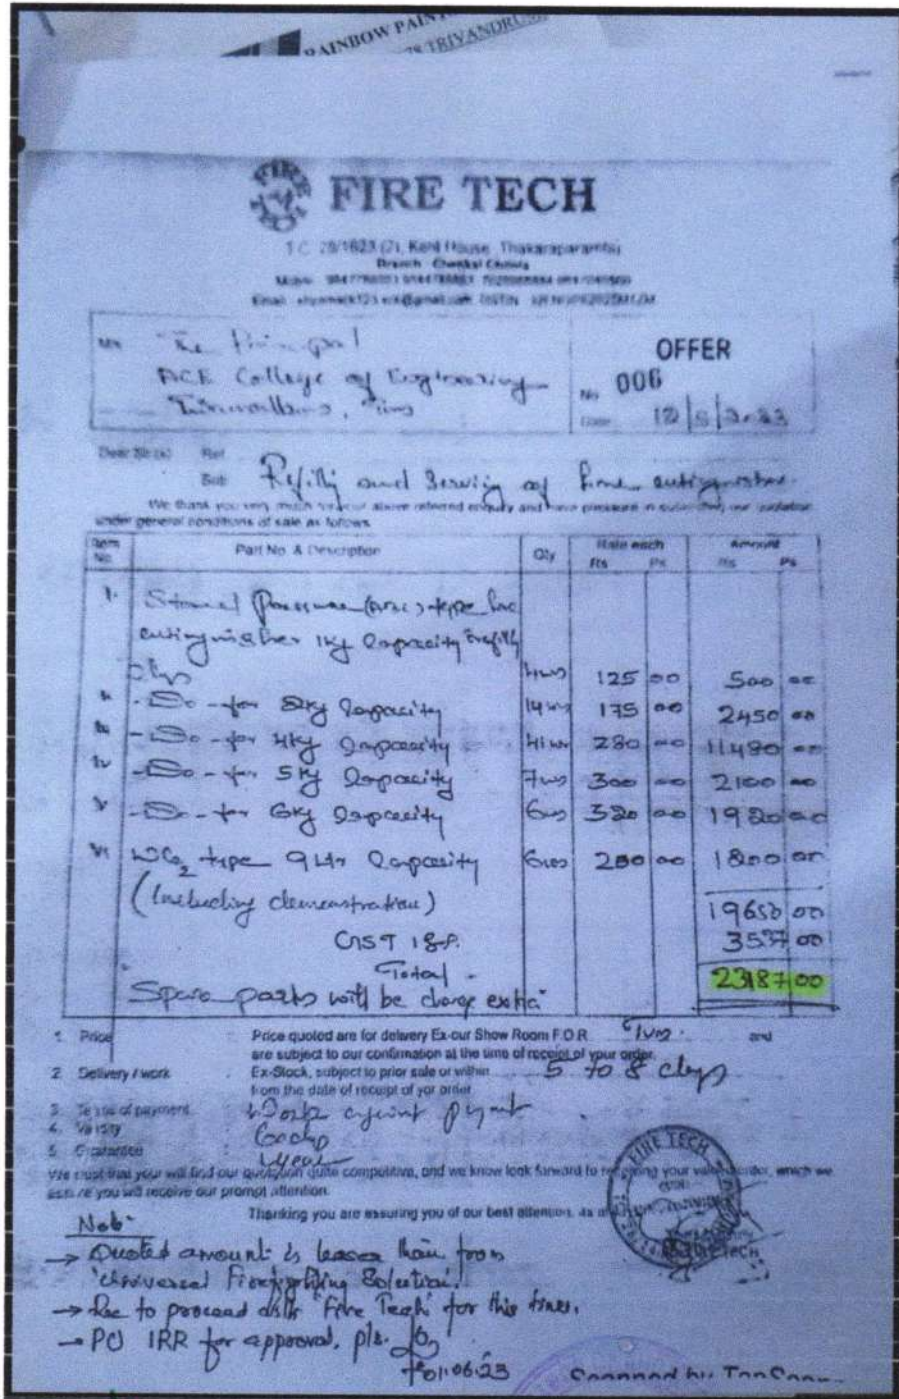 RAINBOW PAINT
TRIVANDRUM
FIRE TECH
T.C. 28/1623 (7), Kent House, Thakaraparambu
Branch : Chenkal Choola
Email :
M/s The Principal
ACE College of Engineering
Thiruvallam, Tvm
OFFER
No. 006
Date 12/5/2023
Dear Sir(s) Ref
Sub Refilling and Servicing of fire extinguisher.
We thank you very much for your above referred enquiry and have pleasure in submitting our quotation
under general conditions of sale as follows
Item No. Part No. & Description Qty Rate each Rs Ps Amount Rs Ps
1. Stored Pressure type fire
extinguisher 1kg Capacity refilling
chgs 4nos 125 00 500 00
-Do- for 2kg Capacity 14nos 175 00 2450 00
-Do- for 4kg Capacity 41nos 280 00 11480 00
iv -Do- for 5kg Capacity 7nos 300 00 2100 00
v -Do- for 6kg Capacity 6nos 320 00 1920 00
vi type 9 Ltr Capacity 6nos 200 00 00
(Including demonstration) 00
GST 18% 3537 00
Total - 23187 00
Spare parts will be charge extra
1. Price : Price quoted are for delivery Ex-our Show Room F.O.R. Tvm. and
are subject to our confirmation at the time of receipt of your order.
2. Delivery / work : Ex-Stock, subject to prior sale or within 5 to 8 days
from the date of receipt of yor order
3. Terms of payment : payment
4. Validity :
5. Guarantee : 1 year
We trust that your will find our quotation quite competitive, and we know look forward to receiving your valued order, which we
assure you will receive our prompt attention.
Thanking you are assuring you of our best attention,
FIRE TECH
Note-
→ Quoted amount is lesser than from
'Universal Firefighting Solution'.
→ Rec to proceed with 'Fire Tech' for this time.
→ PO IRR for approval, pls.
01.06.23
Scanned by TapScanner